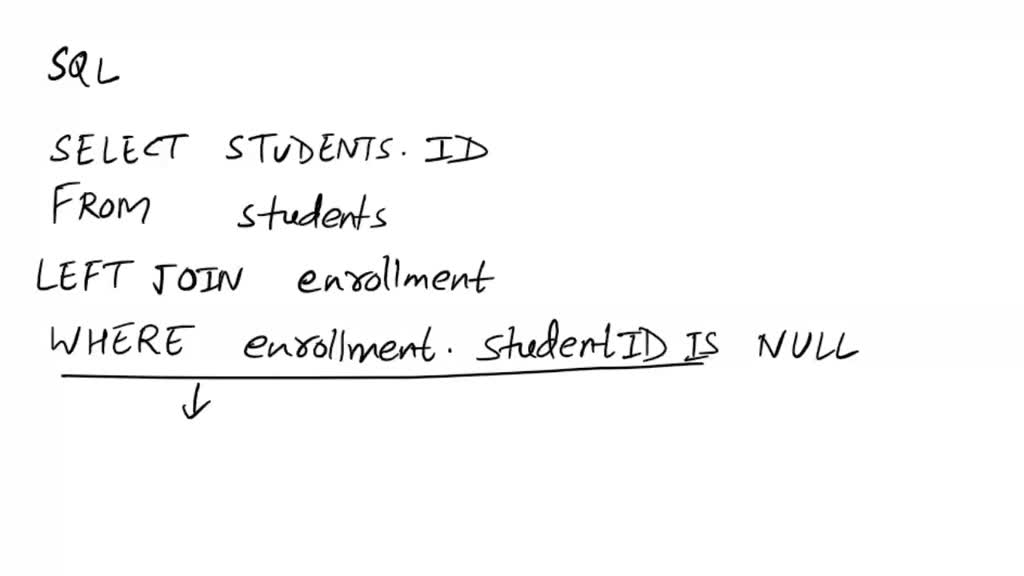 SQL
SELECT STUDENTS.ID
FROM students
LEFT JOIN enrollment
WHERE enrollment.studentID IS NULL